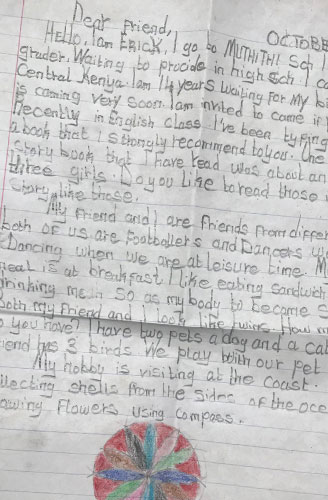 OCTOBE
Dear Friend,
HELLO, I am ERICK, I go to MUTHITHI Sch I
grader. Waiting to procide in high Sch. I co
Central Kenya. Iam 14 years waiting For My bi
is coming Very Soon. Iam invited to come if
Recently in English class I've been
a book that I strongly recommend to you. One
Story book that I have read was about an
three girls. Do you like to read those
Story like those.
My Friend and I are Friends From differ
both of us are Footballers and Dancers W
Dancing when we are at leisure time. M
meal is at breakfast I like eating Sandwich
drinking So as my body to become S
both my Friend and I look like twins. How m
o you have? I have two pets a dog and a cat
iend has 3 birds We play both our pet
My hobby is visiting at the Coast.
llecting Shells From the Side of the oce
owing Flowers using Compass.